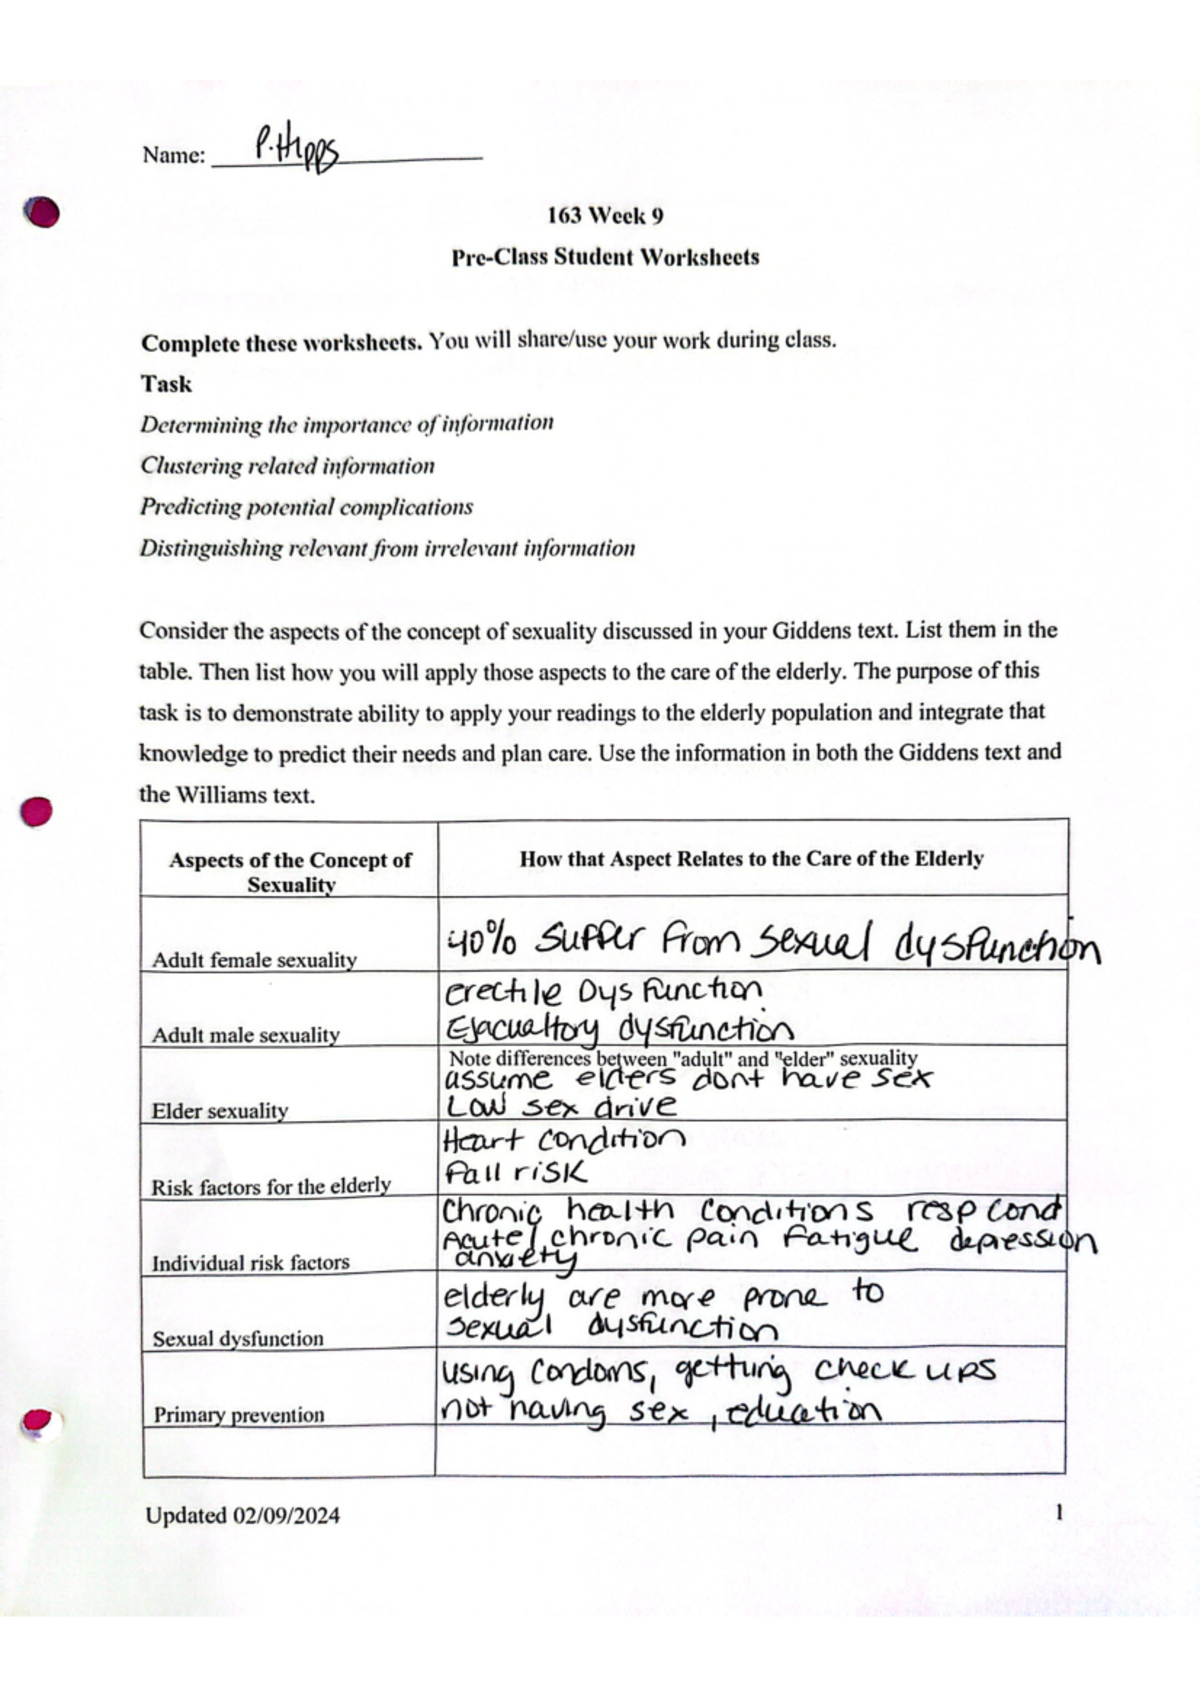 Name: P. Hipps
163 Week 9
Pre-Class Student Worksheets
Complete these worksheets. You will share/use your work during class.
Task
Determining the importance of information
Clustering related information
Predicting potential complications
Distinguishing relevant from irrelevant information
Consider the aspects of the concept of sexuality discussed in your Giddens text. List them in the
table. Then list how you will apply those aspects to the care of the elderly. The purpose of this
task is to demonstrate ability to apply your readings to the elderly population and integrate that
knowledge to predict their needs and plan care. Use the information in both the Giddens text and
the Williams text.
Aspects of the Concept of
Sexuality
How that Aspect Relates to the Care of the Elderly
Adult female sexuality
40% suffer from sexual dysfunction
Adult male sexuality
erectile Dysfunction
Ejacualtory dysfunction
Elder sexuality
Note differences between "adult" and "elder" sexuality
assume elders dont have sex
Low sex drive
Risk factors for the elderly
Heart condition
fall risk
Individual risk factors
chronic health conditions resp cond
Acute/chronic pain fatigue depression
anxiety
Sexual dysfunction
elderly are more prone to
sexual dysfunction
Primary prevention
using condoms, getting check ups
not having sex, education
Updated 02/09/2024
1